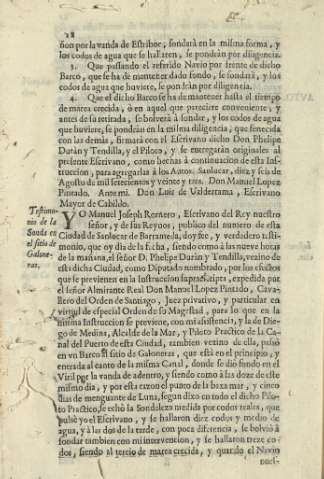 28
sion por la vanda de Estribor, sondarà en la misma forma, y
los codos de agua que se hallaren, se pondràn por diligencia.
3. Que passando el referido Navio por frente de dicho
Barco, que se ha de mantener dado fondo, se sondarà, y los
codos de agua que huviere, se pondràn por diligencia.
4. Que el dicho Barco se ha de mantener hasta el tiempo
de marea crecida, ò en aquel que pareciere conveniente, y
antes de su retirada, se bolverà à sondar, y los codos de agua
que huviere, se pondràn en la misma diligencia, que fenecida
con las demàs, firmarà con el Escrivano dicho Don Phelipe
Duràn y Tendilla, y el Piloto, y se entregaràn originales à
presente Escrivano, como hechas à continuacion de esta Ins-
truccion, para agregarlas à los Autos. Sanlucar, diez y seis de
Agosto de mil setecientos y veinte y tres. Don Manuel Lopez
Pintado. Ante mi. Don Luis de Valderrama, Escrivano
Mayor de Cabildo.
Testimo-
nio de la
Sonda en
el sitio de
Galone-
ras.
YO Manuel Joseph Rernero, Escrivano del Rey nuestro
señor, y de sus Reynos, publico del numero de esta
Ciudad de Sanlucar de Barrameda, doy fee, y verdadero testi-
monio, que oy dia de la fecha, siendo como à las nueve horas
de la mañana, el señor D. Phelipe Duràn y Tendilla, vezino de
esta dicha Ciudad, como Diputado nombrado, por los efectos
que se previenen en la Instruccion suprascripta, expedida por
el señor Almirante Real Don Manuel Lopez Pintado, Cava-
llero del Orden de Santiago, Juez privativo, y particular en
virtud de especial Orden de su Magestad, para lo que en la
misma Instruccion se previene, con mi asistencia, y la de Die-
go de Medina, Alcalde de la Mar, y Piloto Practico de la Ca-
nal del Puerto de esta Ciudad, tambien vezino de ella, passò
en vn Barco al sitio de Galoneras, que està en el principio, y
entrada al canto de la misma Canal, donde se diò fondo en el
Veril por la vanda de adentro, y siendo como à las doze de este
mismo dia, y por esta razon el punto de la baxa mar, y cinco
dias de menguante de Luna, segun dixo en todo el dicho Pilo-
to Practico, se echò la Sondaleza medida por codos reales, que
passè yo el Escrivano, y se hallaron diez codos y medio de
agua, y à las dos de la tarde, con poca diferencia, se bolviò à
sondar tambien con mi intervencion, y se hallaron treze co-
dos, siendo al tercio de marea crecida, y quando el Navio